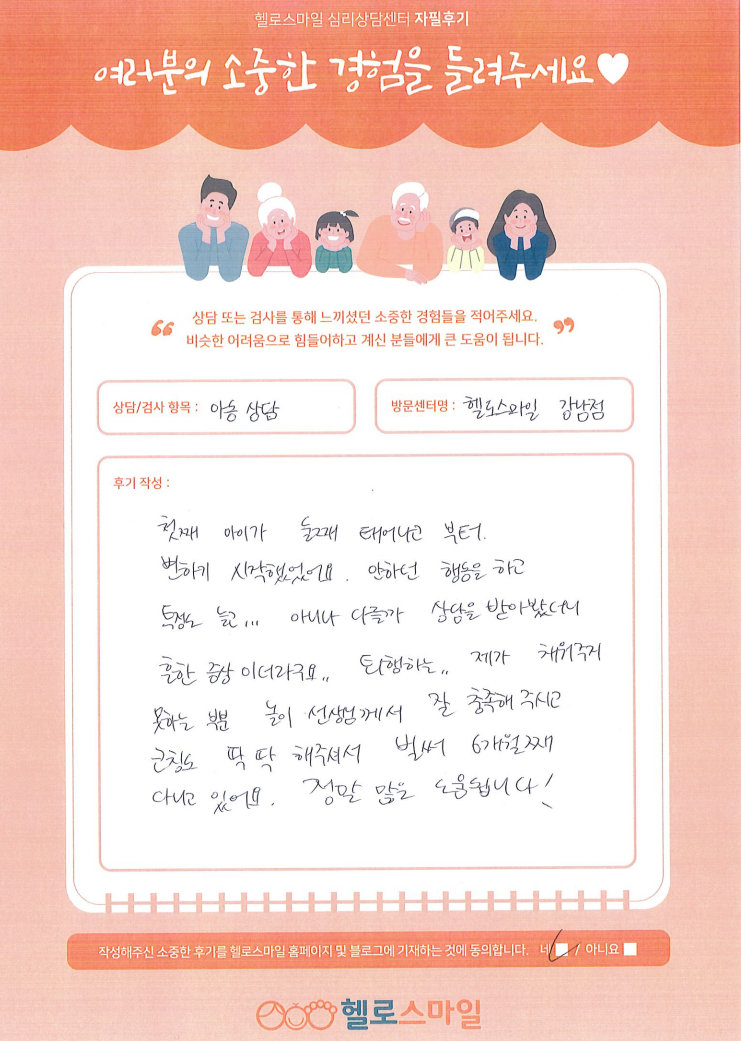 헬로스마일 심리상담센터 자필후기
여러분의 소중한 경험을 들려주세요♥
“ 상담 또는 검사를 통해 느끼셨던 소중한 경험들을 적어주세요. ”
비슷한 어려움으로 힘들어하고 계신 분들에게 큰 도움이 됩니다.
상담/검사 항목 : 아동 상담
방문센터명 : 헬로스마일 강남점
후기 작성 :
첫째 아이가 둘째 태어나고 부터.
변하기 시작했었어요. 안하던 행동을 하고
특정도 늘고... 아니나 다를까 상담을 받아봤더니
흔한 증상 이더라구요.. 퇴행하는.. 제가 채워주지
못하는 부분 놀이 선생님께서 잘 충족해 주시고
코칭도 딱 딱 해주셔서 벌써 6개월째
다니고 있어요. 정말 많은 도움됩니다!
작성해주신 소중한 후기를 헬로스마일 홈페이지 및 블로그에 기재하는 것에 동의합니다. 네 / 아니요
헬로스마일